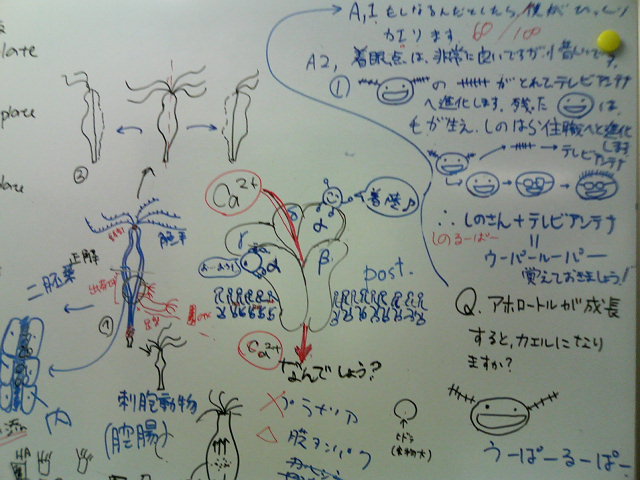 plate
plate
plate
A,1. たしなるんだとしたら、僕がひっくり
カエります。 60/100
A2, 着眼点は、非常に良いですが、惜しいです。
①
の がとれてテレビアンテナ
へ進化します。残った は、
毛が生え、しのはら住職へと進化
します
テレビアンテナ
∴ しのさん+テレビアンテナ
しのるーぱー
=
ウーパールーパー
覚えておきましょう!
Q. アホロートルが成長
すると、カエルになり
ますか?
うーぱーるーぱー
②
Ca2+
δ
α
着陸♪
γ
α
β
post.
Ca2+
なんでしょう?
× プラナリア
△ 膜タンパク
触手
正解
二胚葉
内
刺胞動物
(腔腸)